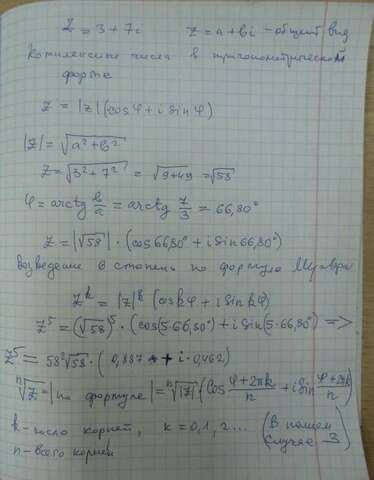 Z = 3 + 7i    Z = a + bi - общий вид
Комплексные числа в тригонометрической
форме
Z = |Z|(cosφ + i sinφ)
|Z| = √(a² + b²)
Z = √(3² + 7²) = √(9+49) = √58
φ = arctg b/a = arctg 7/3 = 66,80°
Z = |√58| · (cos66,80° + i sin66,80°)
Возведение в степень по формуле Муавра
Z^k = |Z|^k (cos kφ + i sin kφ)
Z⁵ = (√58)⁵ · (cos(5·66,80°) + i sin(5·66,80°) =>
Z⁵ = 58²√58 · (0,887 + i · 0,462)
ⁿ√Z = |по формуле| = ⁿ√|Z| (cos (φ+2πk)/n + i sin (φ+2πk)/n)
k - число корней, k = 0,1,2... (В нашем
n - всего корней случае 3)